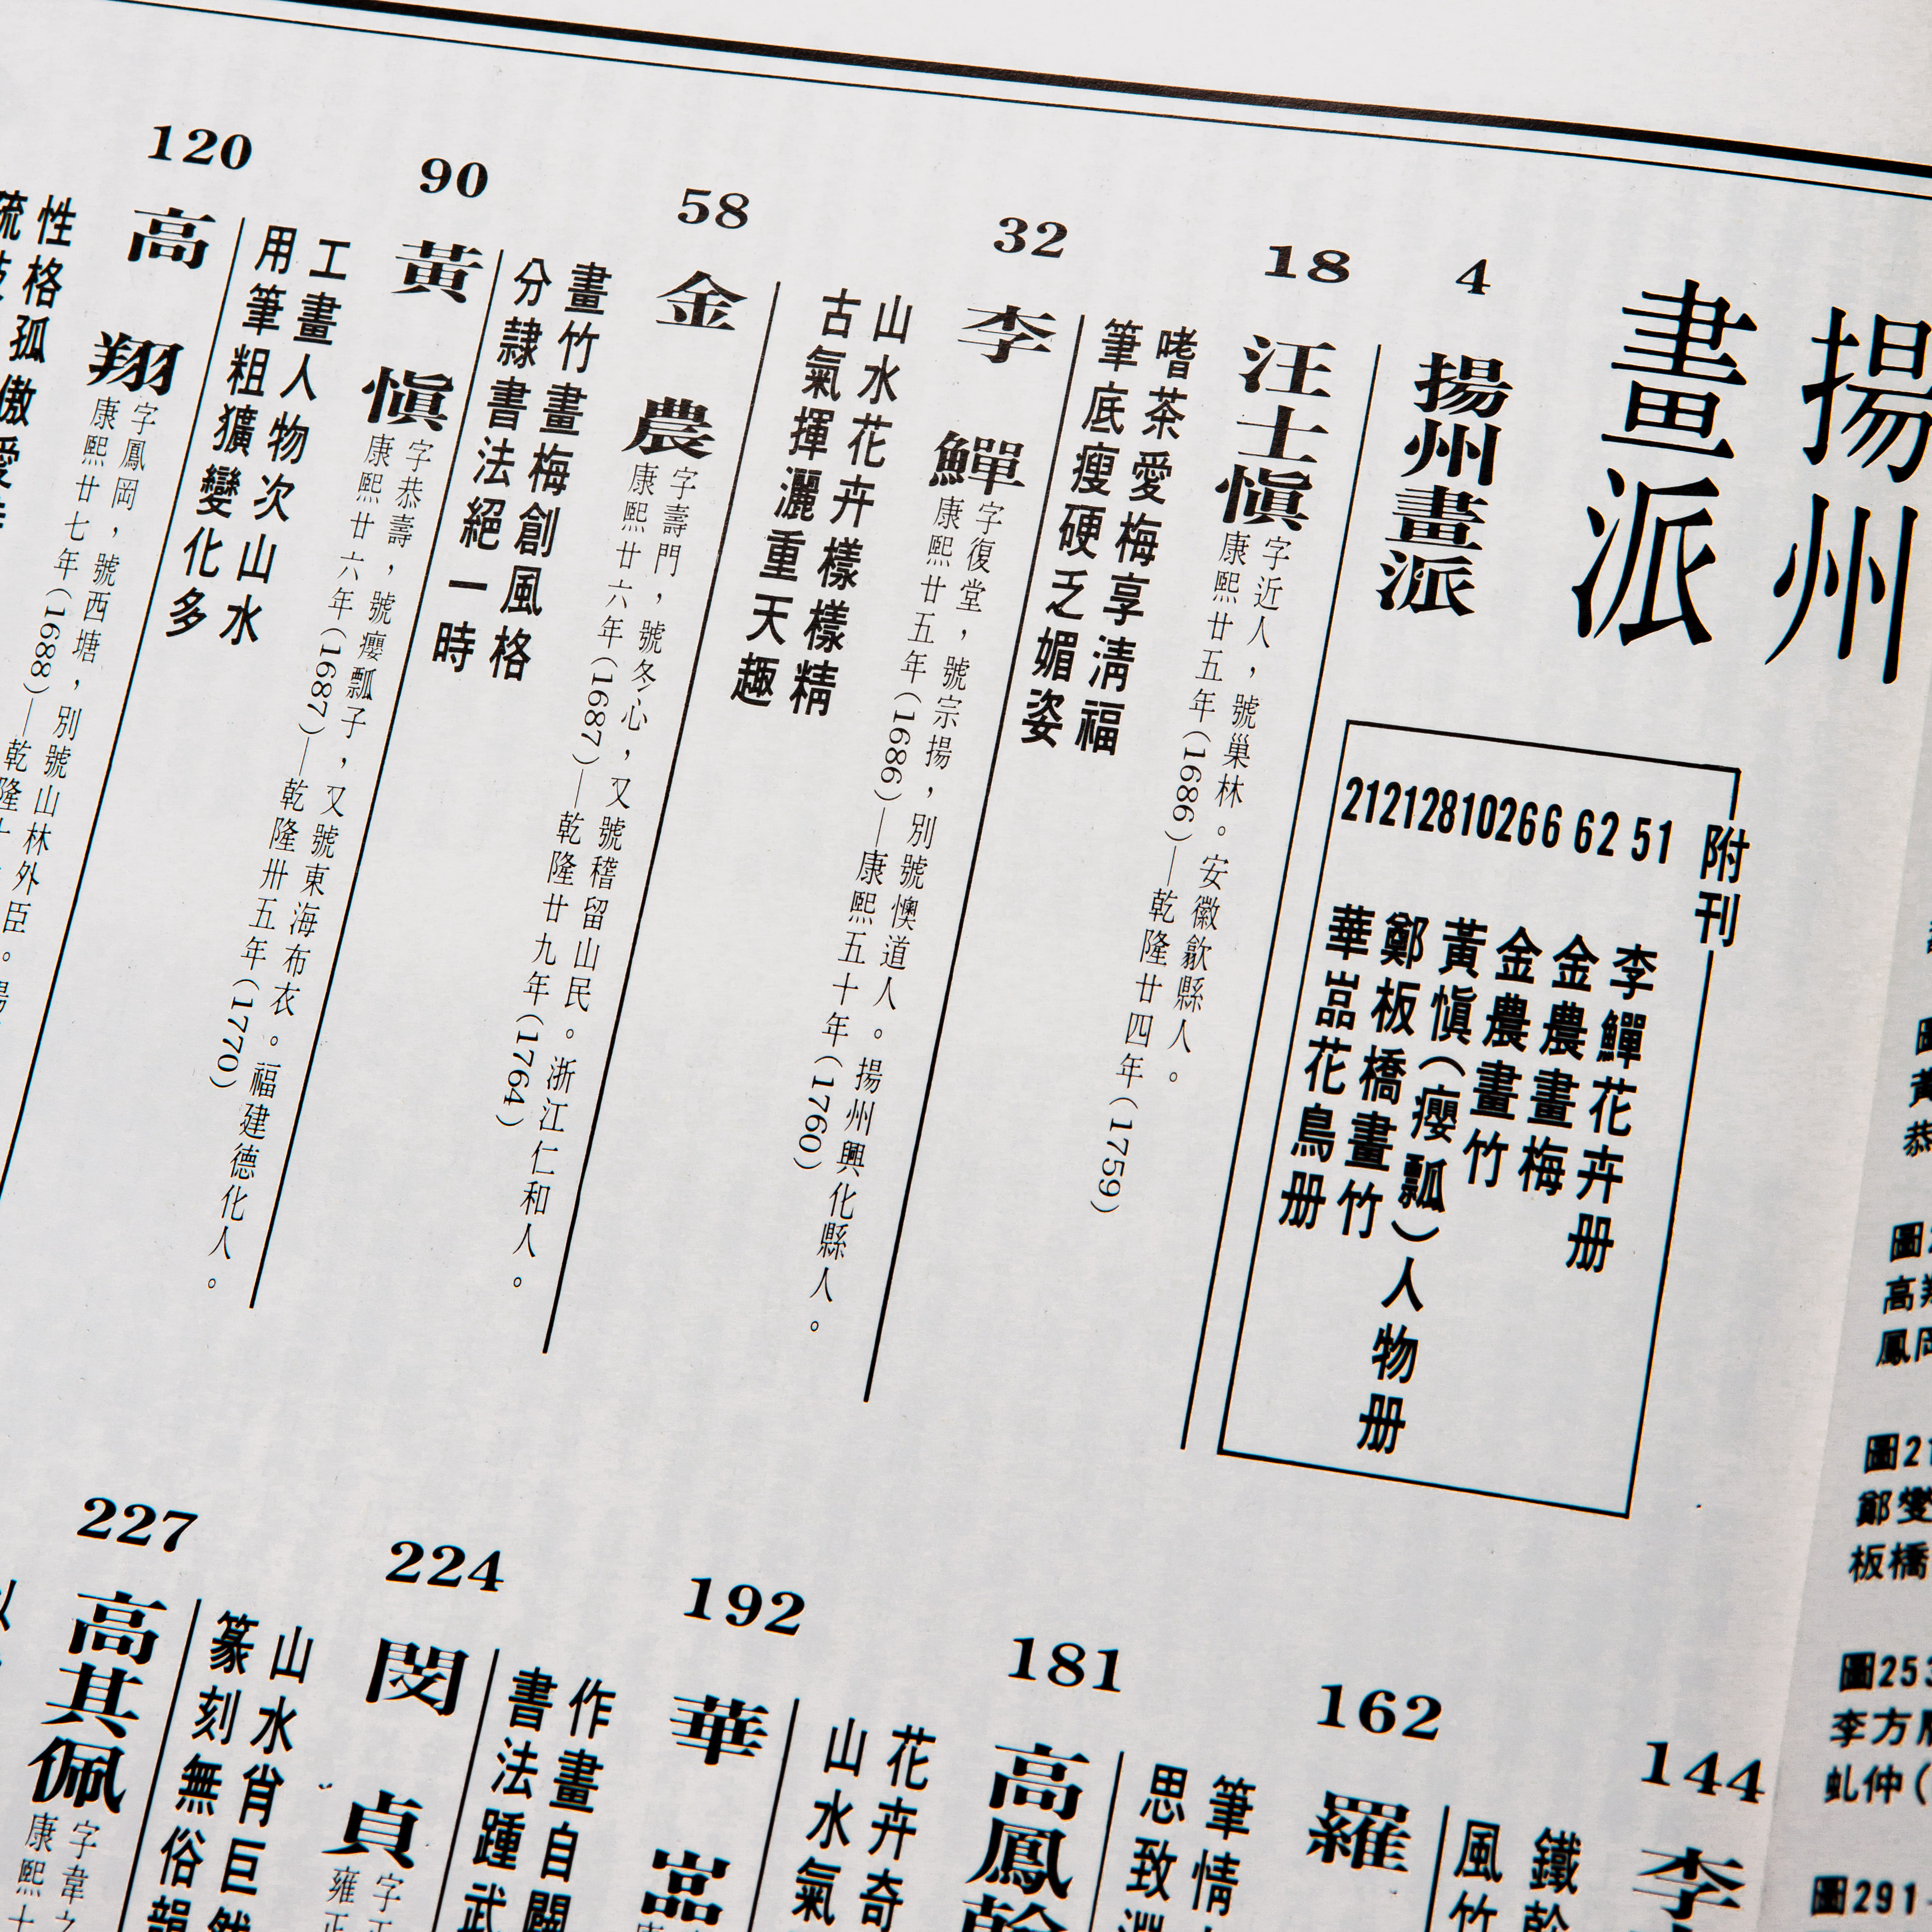 揚州
畫派
4
揚州畫派
附刊
51
李鱓花卉册
62
金農畫梅
66
金農畫竹
102
黃慎(癭瓢)人物册
128
鄭板橋畫竹
212
華嵒花鳥册
18
汪士慎
字近人，號巢林。安徽歙縣人。
康熙廿五年(1686)—乾隆廿四年(1759)
嗜茶愛梅享淸福
筆底瘦硬乏媚姿
32
李鱓
字復堂，號宗揚，別號懊道人。揚州興化縣人。
康熙廿五年(1686)—康熙五十年(1760)
山水花卉樣樣精
古氣揮灑重天趣
58
金農
字壽門，號冬心，又號稽留山民。浙江仁和人。
康熙廿六年(1687)—乾隆廿九年(1764)
畫竹畫梅創風格
分隷書法絕一時
90
黃慎
字恭壽，號癭瓢子，又號東海布衣。福建德化人。
康熙廿六年(1687)—乾隆卅五年(1770)
工畫人物次山水
用筆粗獷變化多
120
高翔
字鳳岡，號西塘，別號山林外臣。
康熙廿七年(1688)—乾隆十
性格孤傲愛
144
李
鐵
風竹
162
羅
筆情
思致
181
高鳳翰
花卉奇
山水氣
192
華嵒
作畫自闢
書法踵武
224
閔貞
字正
雍正
山水肖巨然
篆刻無俗韻
227
高其佩
字韋之
康熙十
黃
恭
圖2
高翔
鳳岡
圖21
鄭燮
板橋
圖253
李方膺
虬仲(
圖291